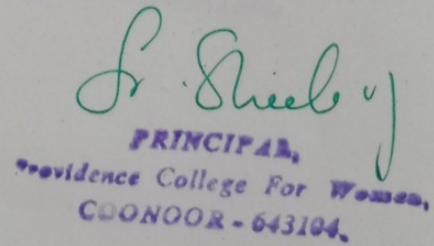 Sr. Sheeba
PRINCIPAL,
Providence College For Women,
COONOOR - 643104.